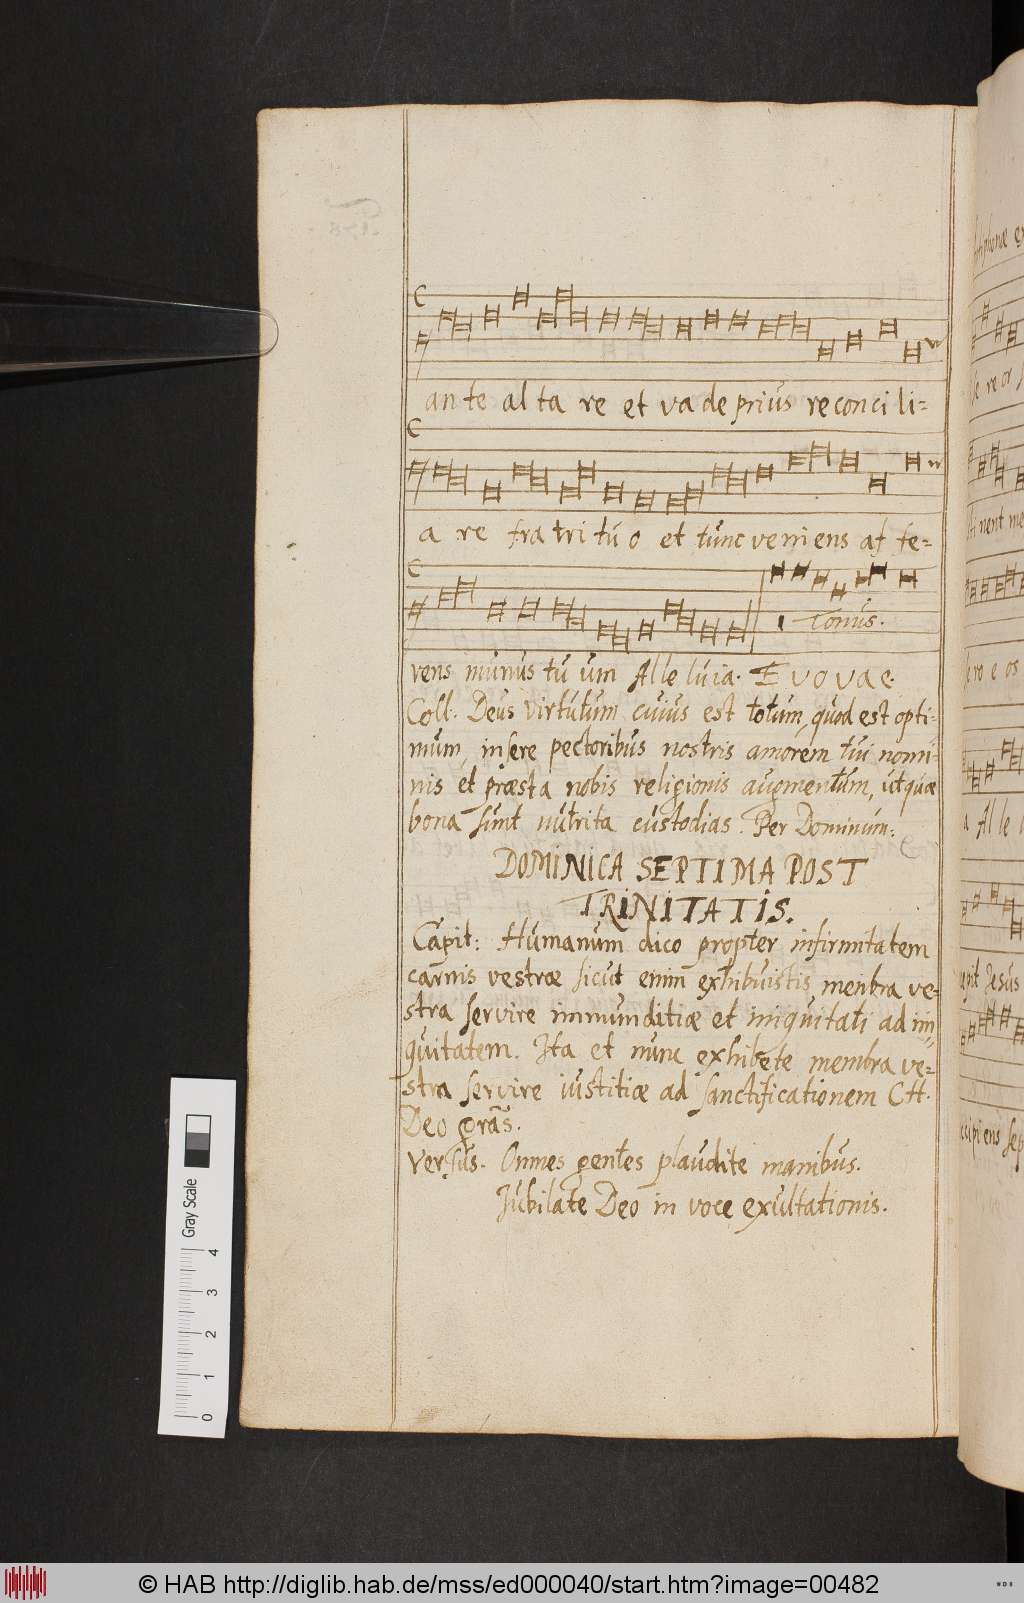 an te al ta re et va de prius reconci li=
a re fra tri tu o et tunc veniens af fe=
1 Tonus.
vens munus tu um Al le luia. E vo va e.
Coll. Deus virtutum cuius est totum, quod est opti=
mum, insere pectoribus nostris amorem tui nomi=
nis et præsta nobis religionis augmentum, ut quæ
bona sunt nutrita custodias. Per Dominum.
DOMINICA SEPTIMA POST
TRINITATIS.
Capit: Humanum dico propter infirmitatem
carnis vestræ sicut enim exhibuistis membra ve=
stra servire immunditiæ et iniquitati ad ini=
quitatem. Ita et nunc exhibete membra ve=
stra servire iustitiæ ad sanctificationem CH.
Deo gras.
Versus. Omnes gentes plaudite manibus.
Jubilate Deo in voce exultationis.
Gray Scale
0 1 2 3 4
© HAB http://diglib.hab.de/mss/ed000040/start.htm?image=00482